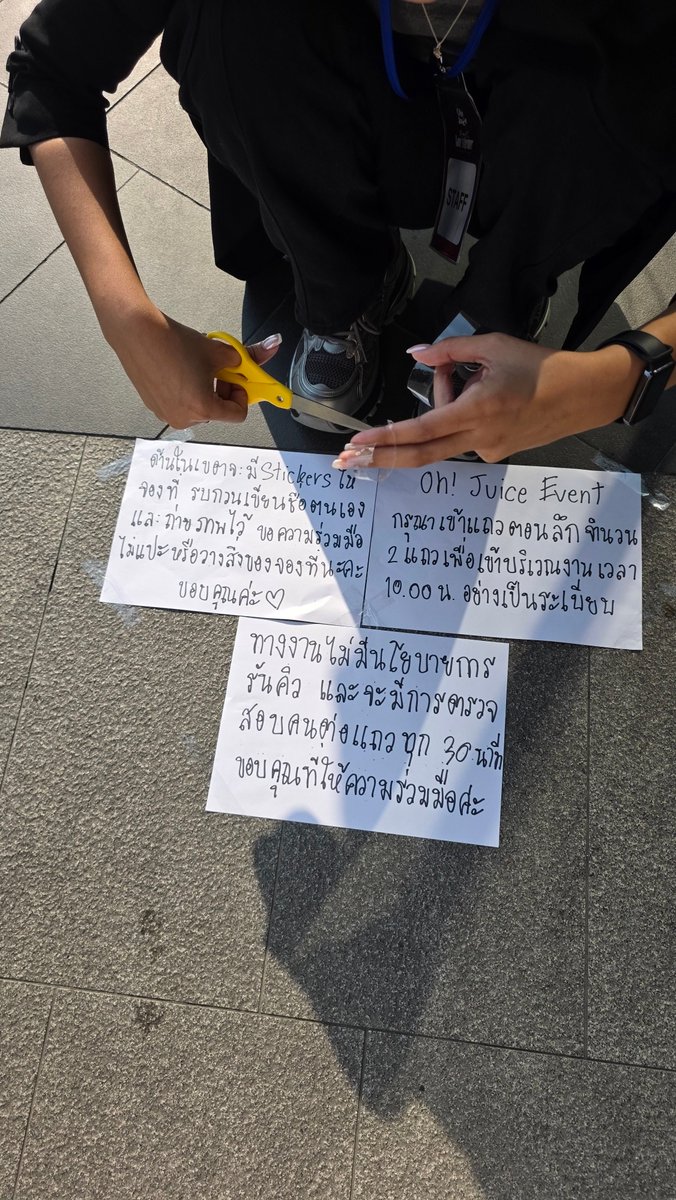 STAFF
ด้านในเขตจะมี Stickers ให้
จองที่ รบกวนเขียนชื่อตนเอง
และถ่ายรูปไว้ ขอความร่วมมือ
ไม่แปะหรือวางสิ่งของจองที่นะคะ
ขอบคุณค่ะ ♡
Oh! Juice Event
กรุณาเข้าแถวตอนลึก จำนวน
2 แถวเพื่อเข้าบริเวณงาน เวลา
10.00 น. อย่างเป็นระเบียบ
ทางงานไม่มีนโยบายการ
รันคิว และจะมีการตรวจ
สอบคนต่อแถวทุก 30 นาที
ขอบคุณที่ให้ความร่วมมือค่ะ